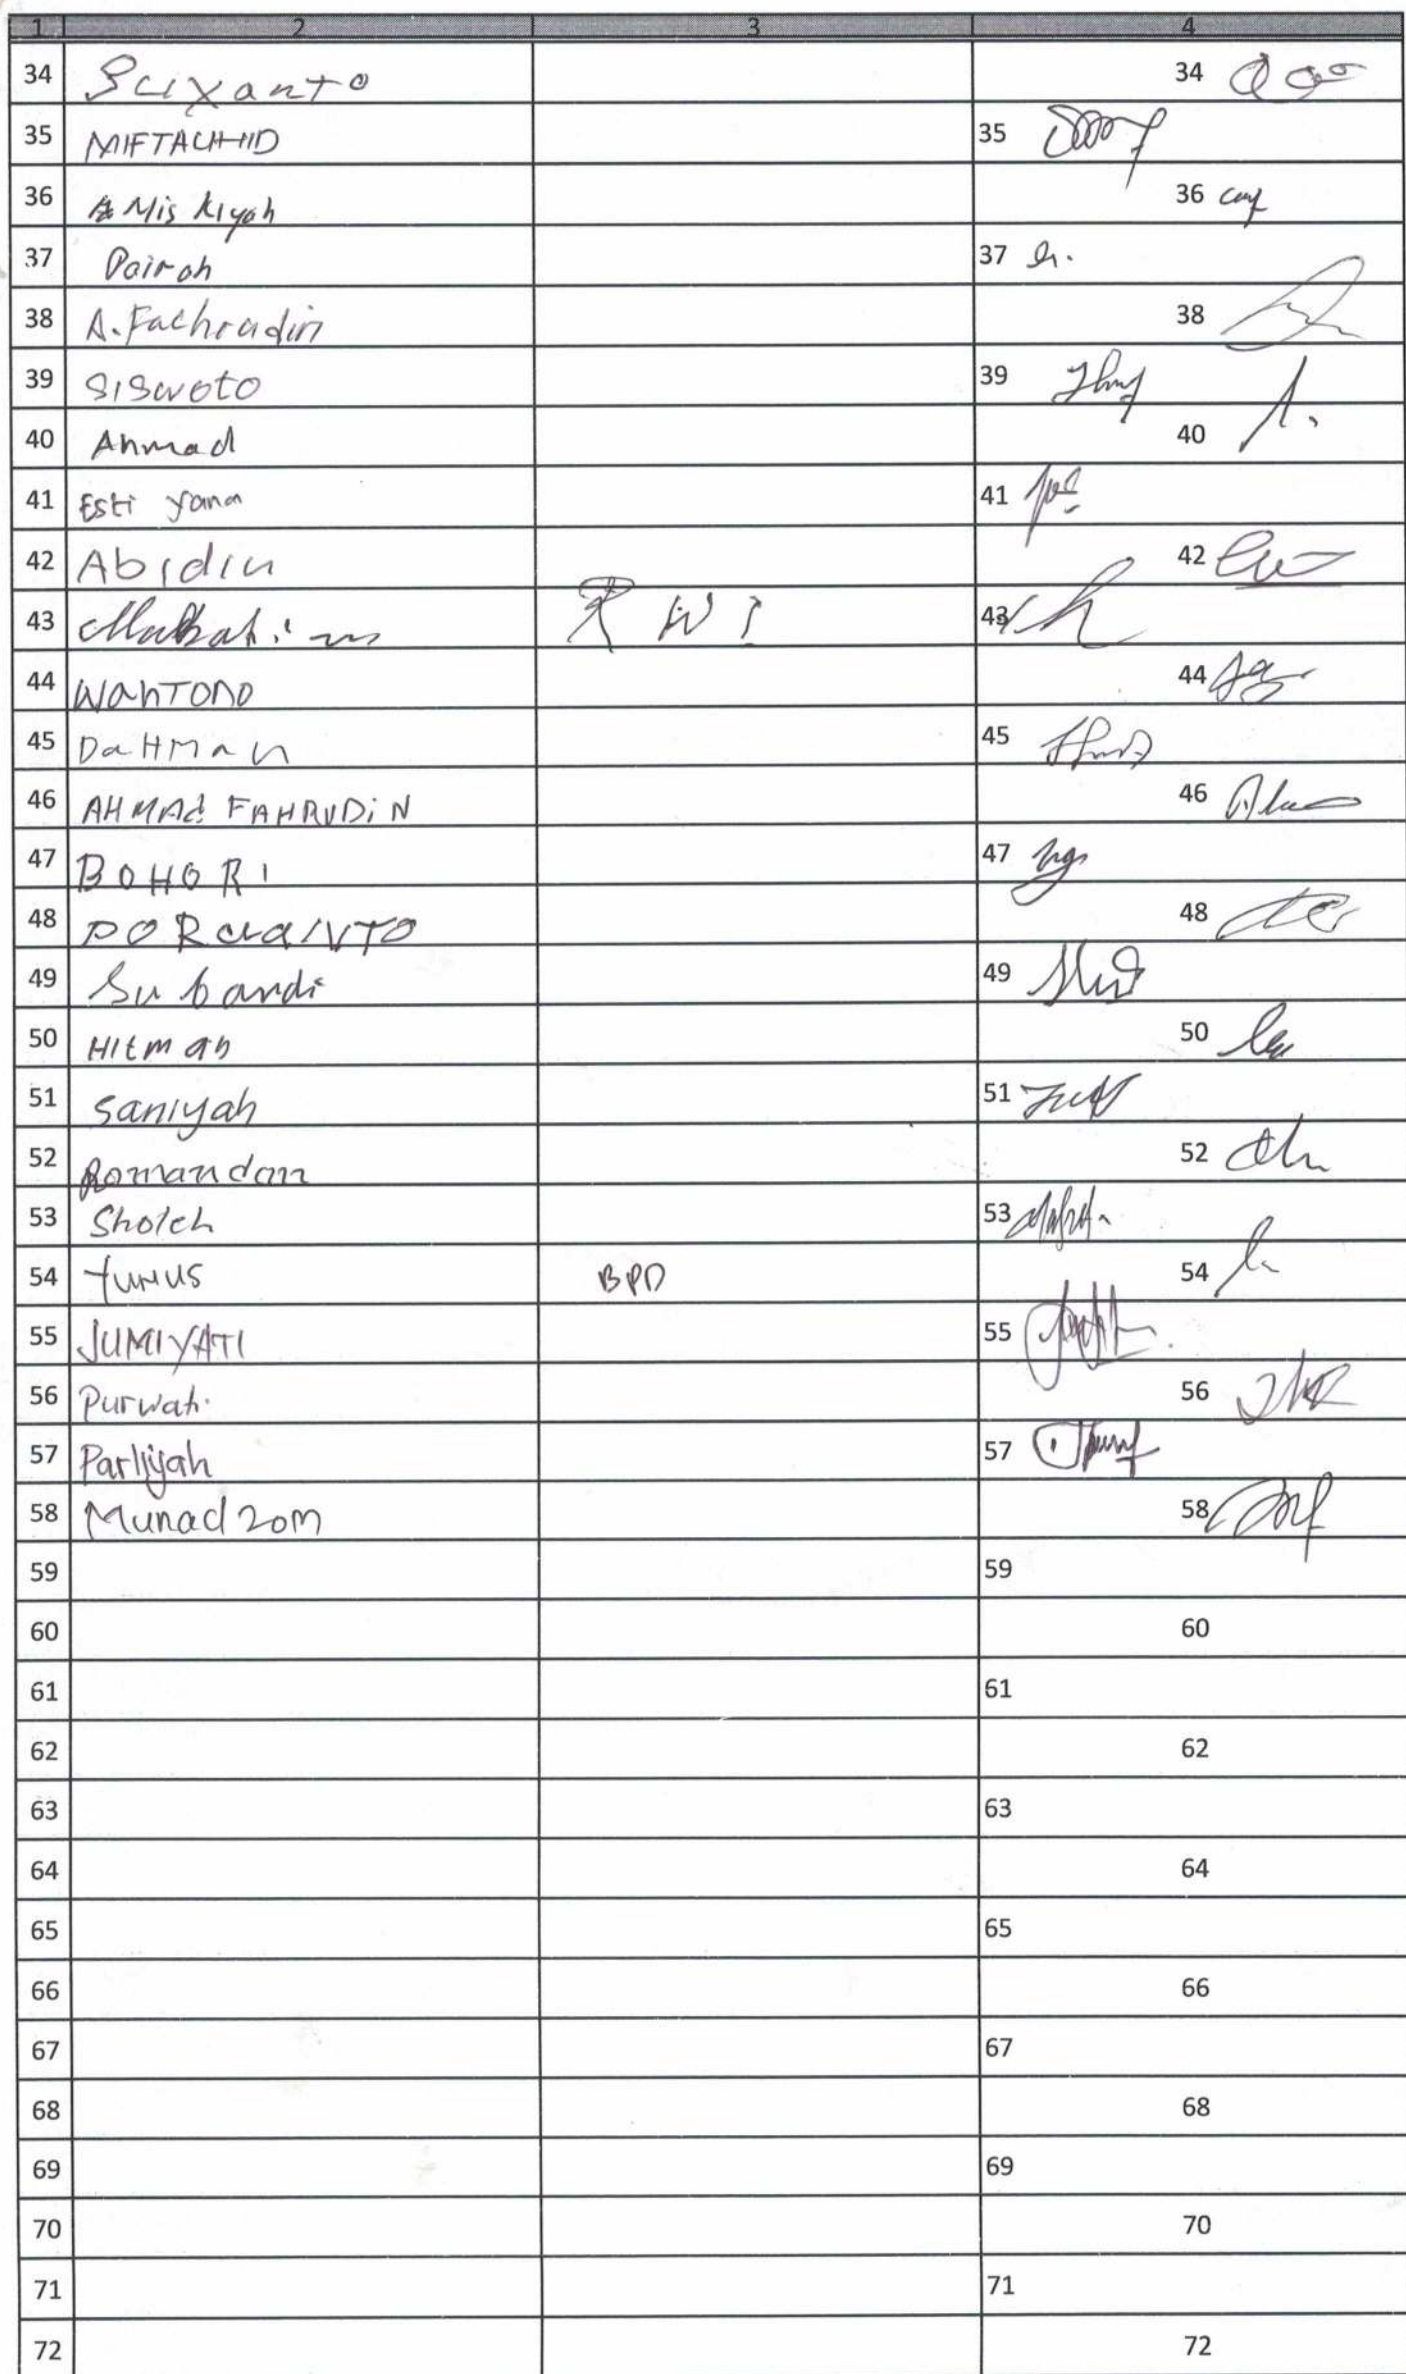 1 2 3 4
34 Suyanto 34
35 MIFTACHUD 35
36 Miskiyah 36
37 Pairah 37
38 A. Fachrudin 38
39 SISWOTO 39
40 Ahmad 40
41 Esti yana 41
42 Abidin 42
43 RW I 43
44 WAhTONO 44
45 DaHMan 45
46 AHMAd FAHRUDiN 46
47 BOHORI 47
48 PORWANTO 48
49 Subandi 49
50 Hitman 50
51 saniyah 51
52 Romandan 52
53 Sholeh 53
54 YUNUS BPD 54
55 JUMIYATI 55
56 Purwati 56
57 Parliyah 57
58 Munadzom 58
59 59
60 60
61 61
62 62
63 63
64 64
65 65
66 66
67 67
68 68
69 69
70 70
71 71
72 72